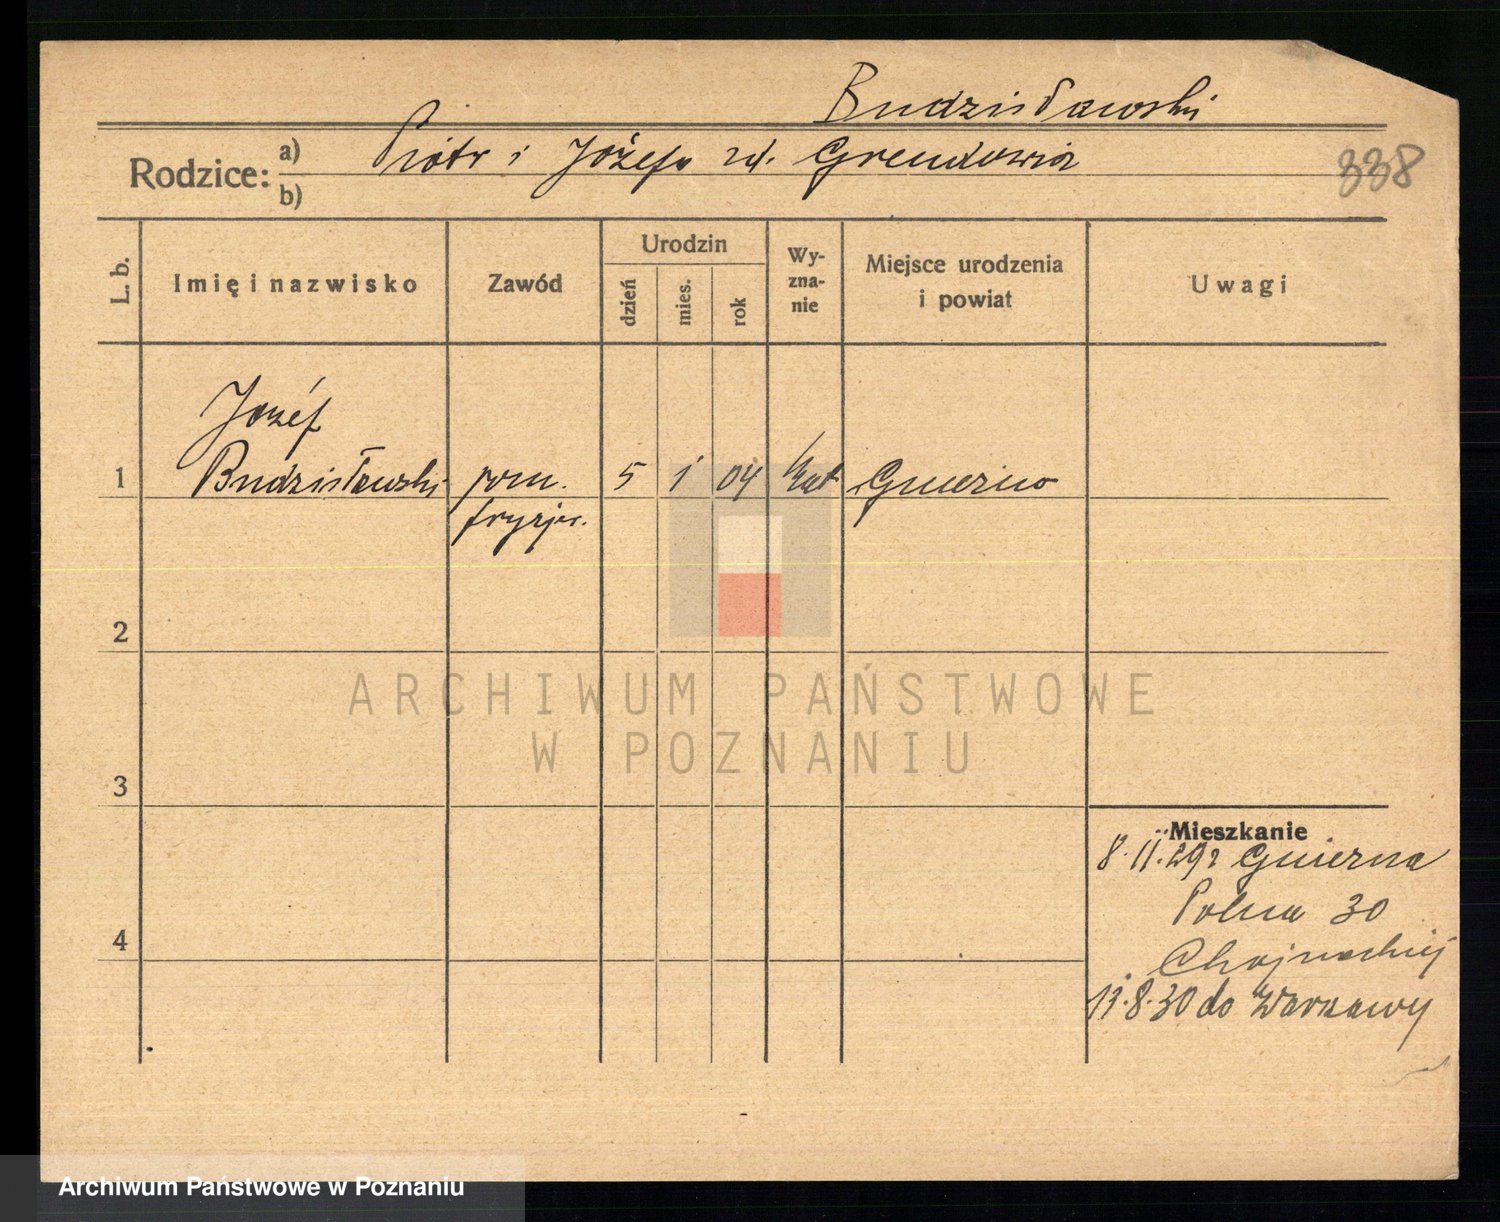 Budzisławski
Rodzice: a) Piotr i Józefa
b)
338
L. b. Imię i nazwisko Zawód Urodzin dzień mies. rok Wy-zna-nie Miejsce urodzenia i powiat Uwagi
Józéf
1 Budzisławski pom. 5 1 04 kat Gniezno
fryzjer.
2
ARCHIWUM PAŃSTWOWE
W POZNANIU
3
Mieszkanie
8.11.29 z Gniezna
Polna 30
4
Chojnackiej
13.8.30 do Warszawy
Archiwum Państwowe w Poznaniu